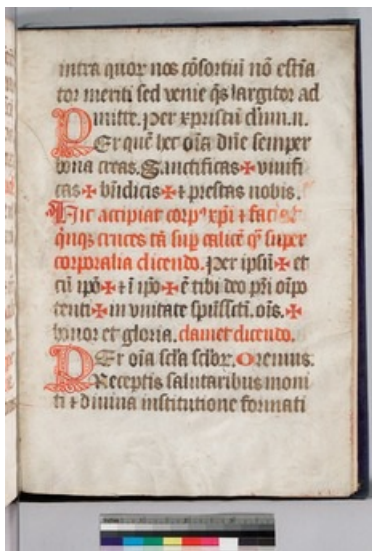 intra quor nos cōsortiū nō estīa
tor meriti sed venie q̄s largitor ad
mitte. Per xpristū dn̄m. n.
Per quē hec oīa dn̄e semper
bona creas. Sanctificas ✠ vivifi
cas ✠ bn̄dicis ✠ ⁊ prestas nobis.
Hic accipiat corpꝰ xp̄i ⁊ faciat
q̄nqꝫ cruces tā sup calicē q̄ super
corporalia dicendo. Per ipsū ✠ et
cū ip̄o ✠ ⁊ ī ip̄o ✠ ē tibi deo pr̄i oīpo
tenti ✠ in unitate spūssctī. oīs. ✠
honor et gloria. clamet dicendo.
PEr oīa scīa scīor. Oremus.
Preceptis salutaribus moni
ti ⁊ divina institutione formati